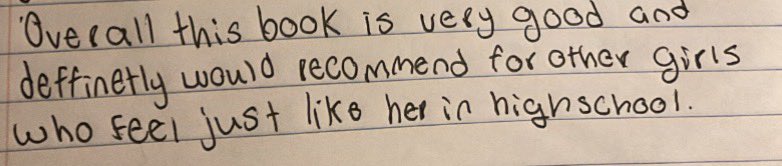 Overall this book is very good and
deffinetly would recommend for other girls
who feel just like her in highschool.